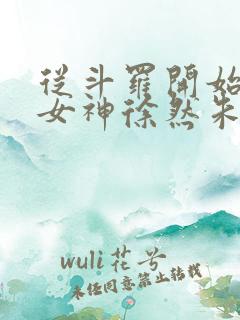 從斗羅開始
女神徐然朱
wuli花兮
未经同意禁止转载